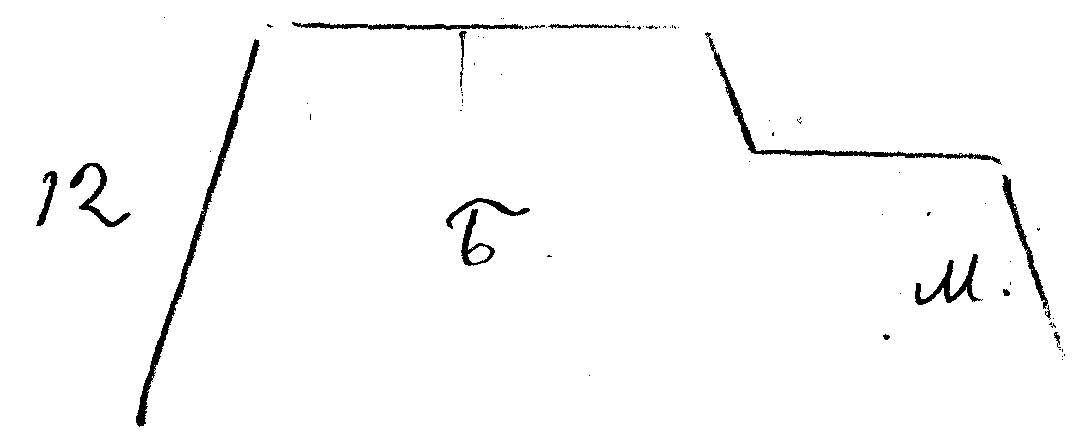 12
Б
М.